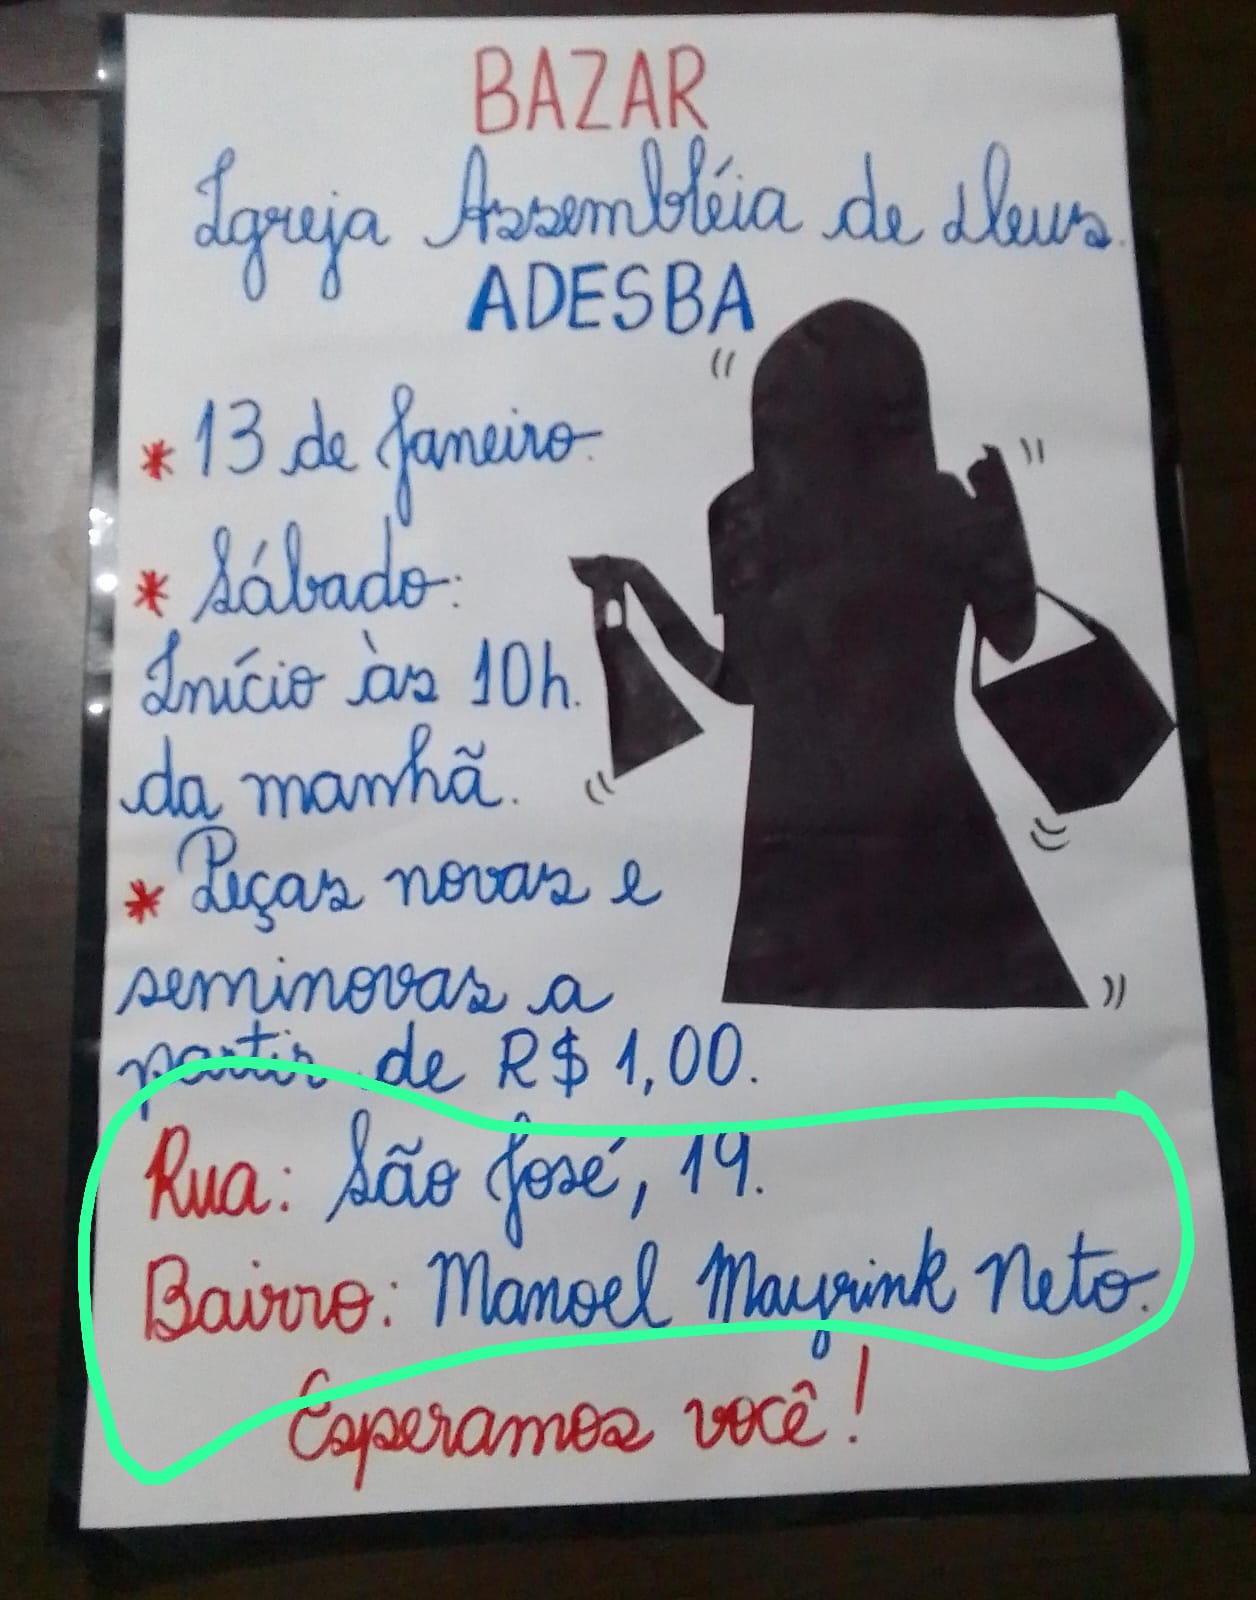 BAZAR
Igreja Assembléia de Deus.
ADESBA
* 13 de Janeiro.
* Sábado:
Início às 10h.
da manhã.
* Peças novas e
seminovas a
partir de R$ 1,00.
Rua: São José, 19.
Bairro: Manoel Mayrink Neto.
Esperamos você!